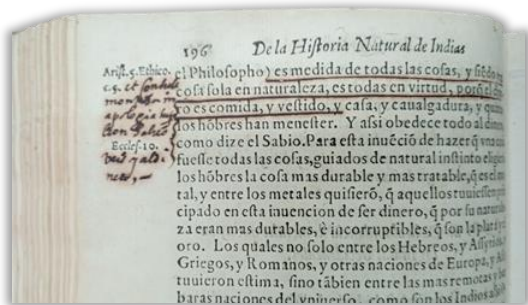 196 De la Hiſtoria Natural de Indias
Ariſt. 5. Ethico.
c. 5.
Eccleſ. 10.
el Philoſopho) es medida de todas las coſas, y ſiẽdo
coſa ſola en naturaleza, es todas en virtud, porq̃ el
ro es comida, y veſtido, y caſa, y caualgadura, y
los hõbres han meneſter. Y aſsi obedece todo al
como dize el Sabio. Para eſta inuẽciõ de hazer q̃ vna
fueſſe todas las coſas, guiados de natural inſtinto
los hõbres la coſa mas durable y mas tratable, q̃ es el
tal, y entre los metales quiſierõ, q̃ aquellos
cipado en eſta inuencion de ſer dinero, q̃ por ſu
za eran mas durables, è incorruptibles, q̃ ſon la plata y
oro. Los quales no ſolo entre los Hebreos, y
Griegos, y Romanos, y otras naciones de Europa, y
tuuieron eſtima, ſino tãbien entre las mas remotas y
baras naciones del vniuerſo, como ſon los Indios